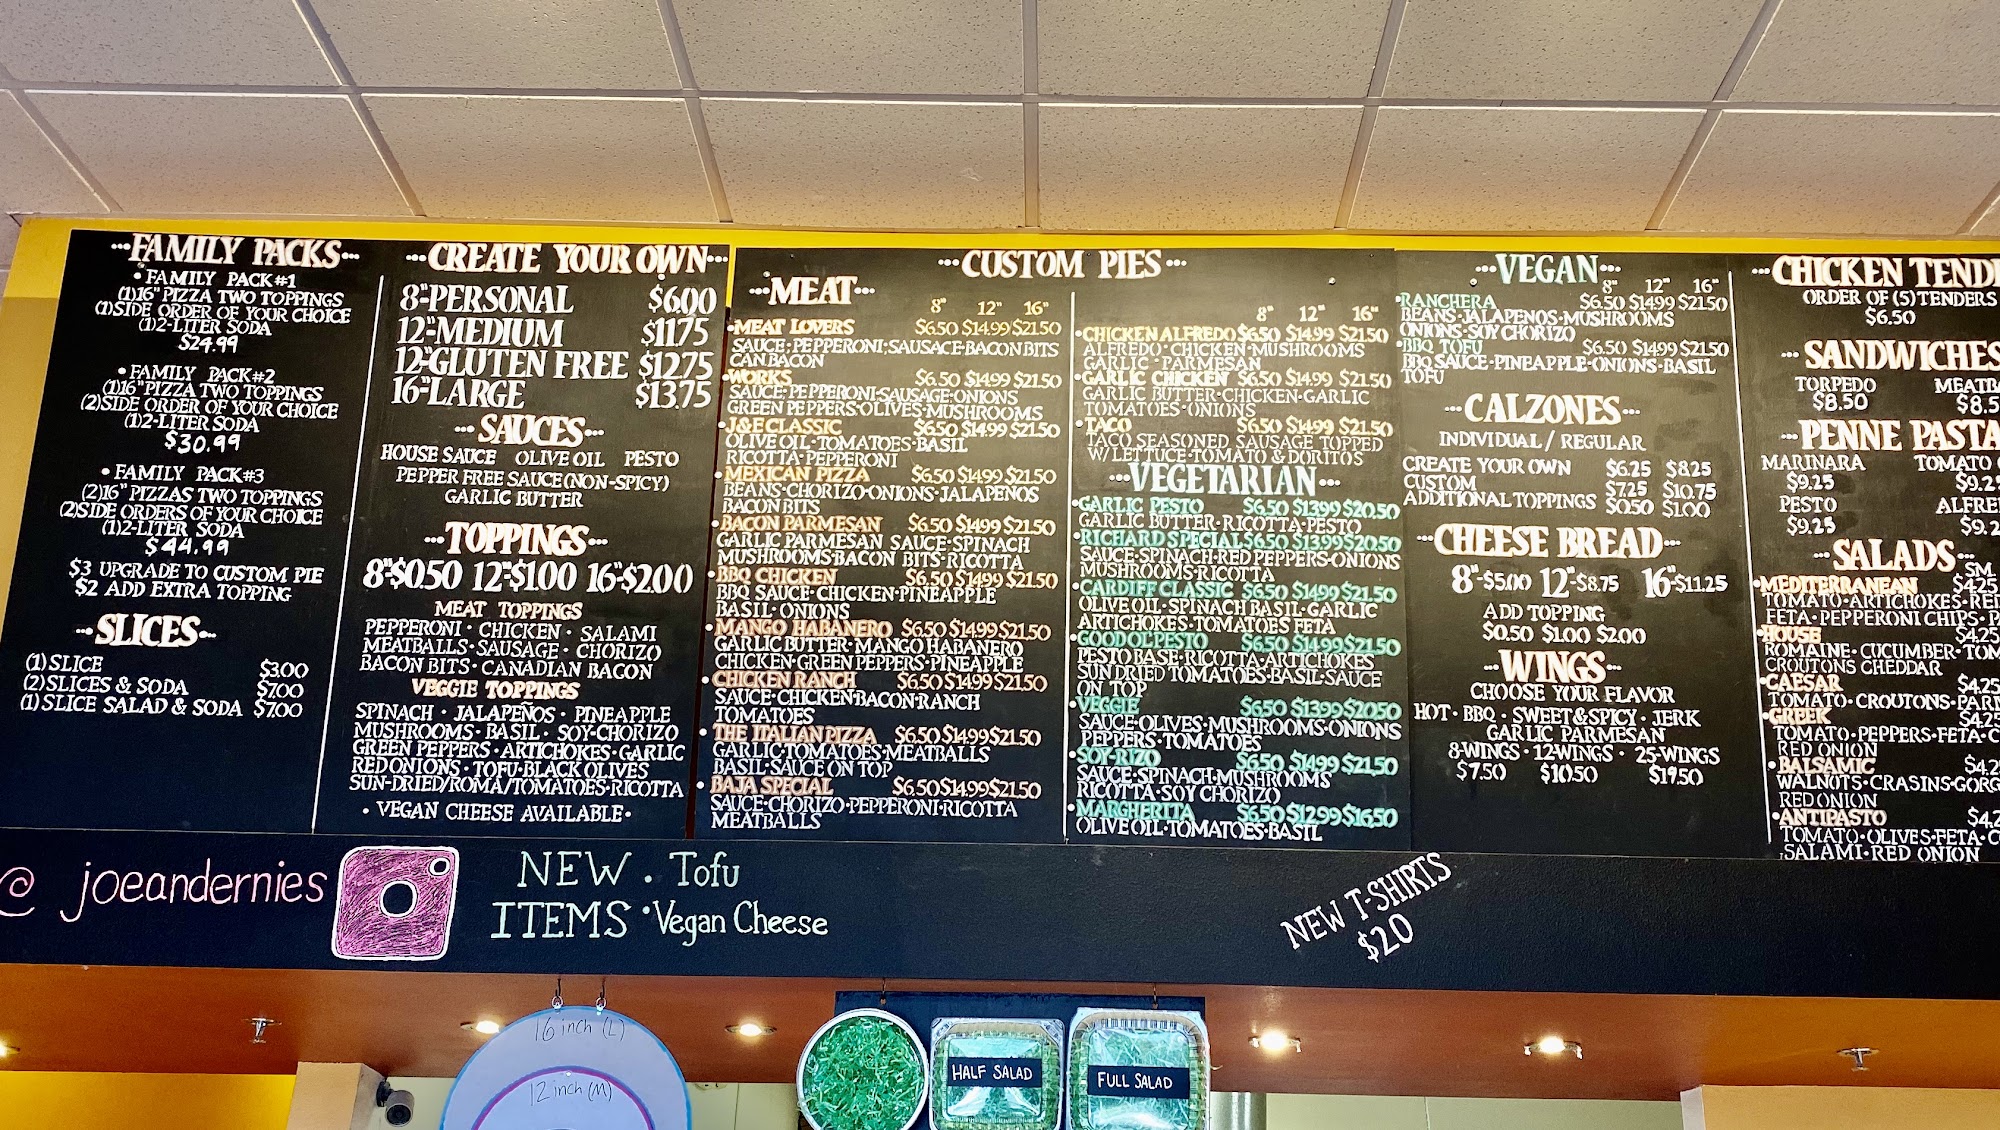 •••FAMILY PACKS•••
• FAMILY PACK #1
(1)16" PIZZA TWO TOPPINGS
(1)SIDE ORDER OF YOUR CHOICE
(1)2-LITER SODA
$24.99
• FAMILY PACK #2
(1)16" PIZZA TWO TOPPINGS
(2)SIDE ORDER OF YOUR CHOICE
(1)2-LITER SODA
$30.99
• FAMILY PACK #3
(2)16" PIZZAS TWO TOPPINGS
(2)SIDE ORDERS OF YOUR CHOICE
(1)2-LITER SODA
$44.99
$3 UPGRADE TO CUSTOM PIE
$2 ADD EXTRA TOPPING
•••SLICES•••
(1)SLICE $3.00
(2)SLICES & SODA $7.00
(1)SLICE SALAD & SODA $7.00
•••CREATE YOUR OWN•••
8"-PERSONAL $6.00
12"-MEDIUM $11.75
12"-GLUTEN FREE $12.75
16"-LARGE $13.75
•••SAUCES•••
HOUSE SAUCE OLIVE OIL PESTO
PEPPER FREE SAUCE (NON-SPICY)
GARLIC BUTTER
•••TOPPINGS•••
8"-$0.50 12"-$1.00 16"-$2.00
MEAT TOPPINGS
PEPPERONI • CHICKEN • SALAMI
MEATBALLS • SAUSAGE • CHORIZO
BACON BITS • CANADIAN BACON
VEGGIE TOPPINGS
SPINACH • JALAPEÑOS • PINEAPPLE
MUSHROOMS • BASIL • SOY-CHORIZO
GREEN PEPPERS • ARTICHOKES • GARLIC
RED ONIONS • TOFU • BLACK OLIVES
SUN-DRIED/ROMA/TOMATOES • RICOTTA
• VEGAN CHEESE AVAILABLE •
•••CUSTOM PIES•••
•••MEAT•••
8" 12" 16"
•MEAT LOVERS $6.50 $14.99 $21.50
SAUCE•PEPPERONI•SAUSAGE•BACON BITS
CAN.BACON
•WORKS $6.50 $14.99 $21.50
SAUCE•PEPPERONI•SAUSAGE•ONIONS
GREEN PEPPERS•OLIVES•MUSHROOMS
•J&E CLASSIC $6.50 $14.99 $21.50
OLIVE OIL•TOMATOES•BASIL
RICOTTA•PEPPERONI
•MEXICAN PIZZA $6.50 $14.99 $21.50
BEANS•CHORIZO•ONIONS•JALAPENOS
BACON BITS
•BACON PARMESAN $6.50 $14.99 $21.50
GARLIC PARMESAN SAUCE•SPINACH
MUSHROOMS•BACON BITS•RICOTTA
•BBQ CHICKEN $6.50 $14.99 $21.50
BBQ SAUCE•CHICKEN•PINEAPPLE
BASIL•ONIONS
•MANGO HABANERO $6.50 $14.99 $21.50
GARLIC BUTTER•MANGO HABANERO
CHICKEN•GREEN PEPPERS•PINEAPPLE
•CHICKEN RANCH $6.50 $14.99 $21.50
SAUCE•CHICKEN•BACON•RANCH
TOMATOES
•THE ITALIAN PIZZA $6.50 $14.99 $21.50
GARLIC•TOMATOES•MEATBALLS
BASIL•SAUCE ON TOP
•BAJA SPECIAL $6.50 $14.99 $21.50
SAUCE•CHORIZO•PEPPERONI•RICOTTA
MEATBALLS
8" 12" 16"
•CHICKEN ALFREDO $6.50 $14.99 $21.50
ALFREDO•CHICKEN•MUSHROOMS
GARLIC•PARMESAN
•GARLIC CHICKEN $6.50 $14.99 $21.50
GARLIC BUTTER•CHICKEN•GARLIC
TOMATOES•ONIONS
•TACO $6.50 $14.99 $21.50
TACO SEASONED SAUSAGE TOPPED
W/LETTUCE•TOMATO & DORITOS
•••VEGETARIAN•••
•GARLIC PESTO $6.50 $13.99 $20.50
GARLIC BUTTER•RICOTTA•PESTO
•RICHARD SPECIAL $6.50 $13.99 $20.50
SAUCE•SPINACH•RED PEPPERS•ONIONS
MUSHROOMS•RICOTTA
•CARDIFF CLASSIC $6.50 $14.99 $21.50
OLIVE OIL•SPINACH BASIL•GARLIC
ARTICHOKES•TOMATOES FETA
•GOOD OL' PESTO $6.50 $14.99 $21.50
PESTO BASE•RICOTTA•ARTICHOKES
SUN DRIED TOMATOES•BASIL•SAUCE
ON TOP
•VEGGIE $6.50 $13.99 $20.50
SAUCE•OLIVES•MUSHROOMS•ONIONS
PEPPERS•TOMATOES
•SOY-RIZO $6.50 $14.99 $21.50
SAUCE•SPINACH•MUSHROOMS
RICOTTA•SOY CHORIZO
•MARGHERITA $6.50 $12.99 $16.50
OLIVE OIL•TOMATOES•BASIL
•••VEGAN•••
8" 12" 16"
•RANCHERA $6.50 $14.99 $21.50
BEANS•JALAPENOS•MUSHROOMS
ONIONS•SOY CHORIZO
•BBQ TOFU $6.50 $14.99 $21.50
BBQ SAUCE•PINEAPPLE•ONIONS•BASIL
TOFU
•••CALZONES•••
INDIVIDUAL / REGULAR
CREATE YOUR OWN $6.25 $8.25
CUSTOM $7.25 $10.75
ADDITIONAL TOPPINGS $0.50 $1.00
•••CHEESE BREAD•••
8"-$5.00 12"-$8.75 16"-$11.25
ADD TOPPING
$0.50 $1.00 $2.00
•••WINGS•••
CHOOSE YOUR FLAVOR
HOT • BBQ • SWEET & SPICY • JERK
GARLIC PARMESAN
8-WINGS • 12-WINGS • 25-WINGS
$7.50 $10.50 $19.50
•••CHICKEN TENDE
ORDER OF (5) TENDERS
$6.50
•••SANDWICHES
TORPEDO MEATBA
$8.50 $8.5
•••PENNE PASTA
MARINARA TOMATO
$9.25 $9.2
PESTO ALFRE
$9.25 $9.2
•••SALADS•••
SM
•MEDITERRANEAN $4.25
TOMATO•ARTICHOKES•RED
FETA•PEPPERONI CHIPS•P
•HOUSE $4.25
ROMAINE•CUCUMBER•TOM
CROUTONS CHEDDAR
•CAESAR $4.25
TOMATO•CROUTONS•PARM
•GREEK $4.25
TOMATO•PEPPERS•FETA•C
RED ONION
•BALSAMIC $4.2
WALNUTS•CRASINS•GORG
RED ONION
•ANTIPASTO $4.2
TOMATO•OLIVES•FETA•C
SALAMI•RED ONION
@ joeandernies
NEW • Tofu
ITEMS • Vegan Cheese
NEW T-SHIRTS
$20
16 inch (L)
12 inch (M)
HALF SALAD
FULL SALAD